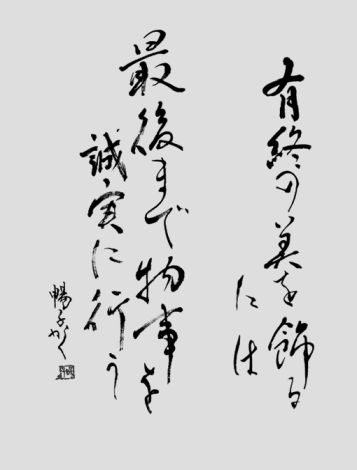 有終の美を飾る
には
最後まで物事を
誠実に行う
暢子かく